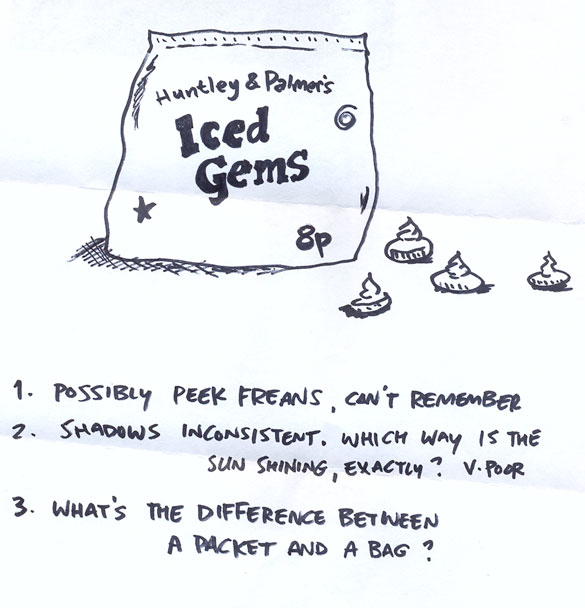 Huntley & Palmer's
Iced
Gems
8p
1. POSSIBLY PEEK FREANS, CAN'T REMEMBER
2. SHADOWS INCONSISTENT. WHICH WAY IS THE
SUN SHINING, EXACTLY? V. POOR
3. WHAT'S THE DIFFERENCE BETWEEN
A PACKET AND A BAG?